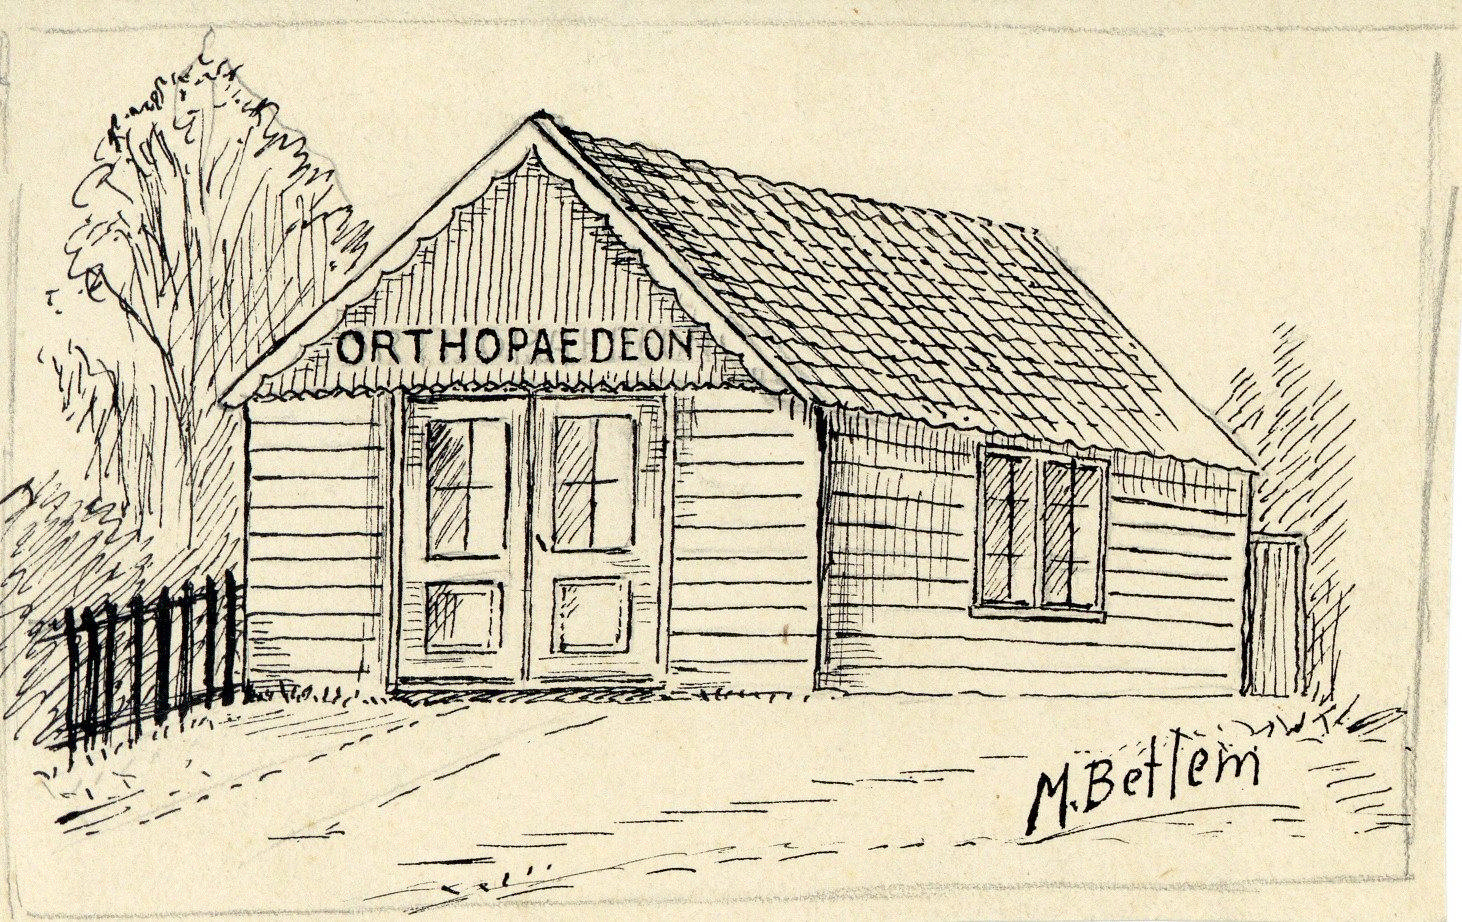 ORTHOPAEDEON
M. Bettem